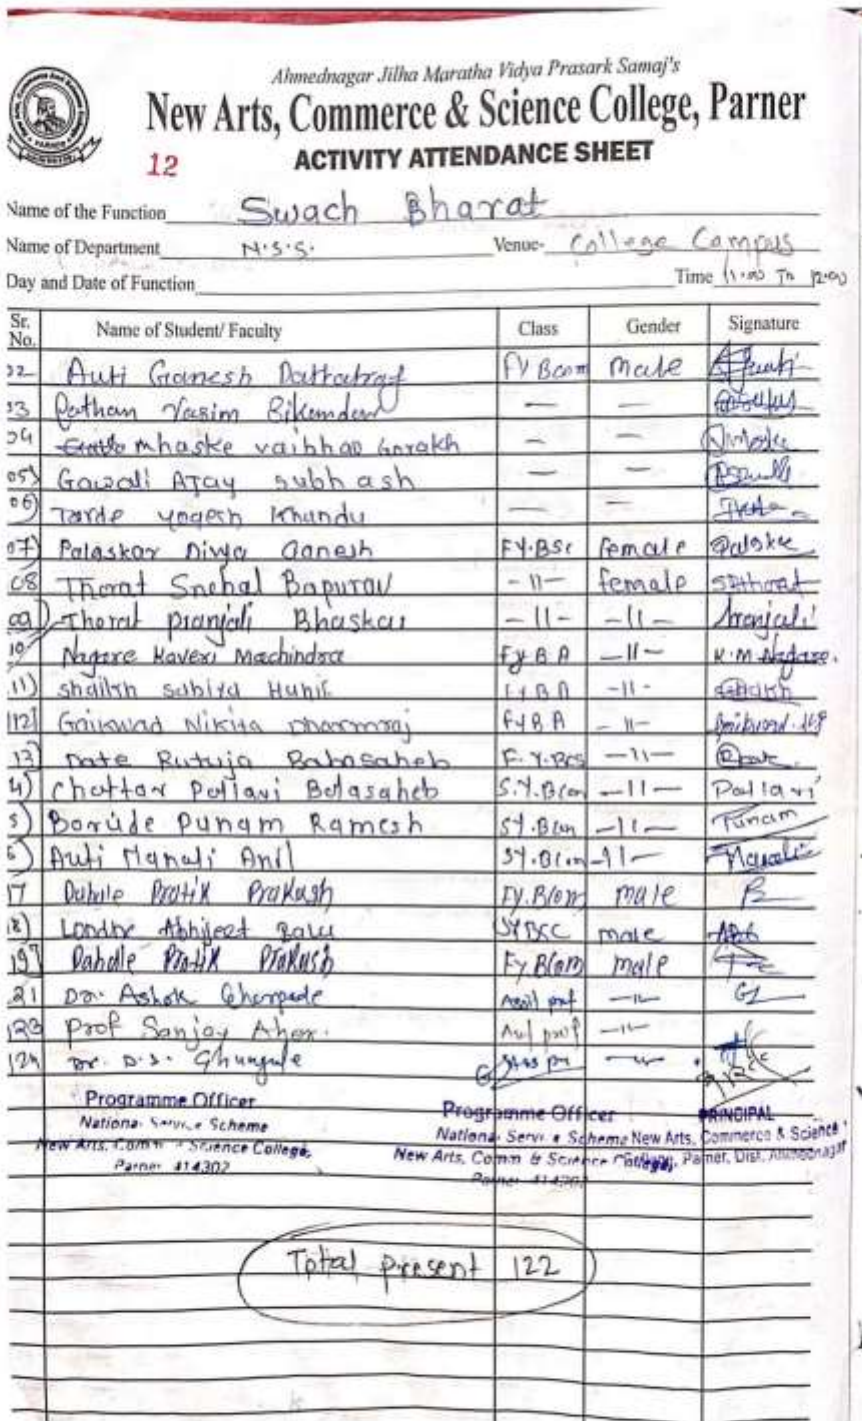 Ahmednagar Jilha Maratha Vidya Prasark Samaj's
New Arts, Commerce & Science College, Parner
12
ACTIVITY ATTENDANCE SHEET
Name of the Function Swach Bharat
Name of Department N.S.S. Venue- College Campus
Day and Date of Function Time 11.00 To 12.00
Sr. No. Name of Student/ Faculty Class Gender Signature
02 Auti Ganesh Dattatray FY Bcom male
03 Pathan Vasim — —
04 mhaske vaibhav Gorakh — —
05) Gawali Ajay subhash — —
06) Tarde yogesh Khandu — —
07) Palaskar Divya Ganesh FY.BSc female
08 Thorat Snehal Bapurav -11- female SBthorat
09) Thorat pranjali Bhaskar -11- -11- Pranjali
10 Nagare Kaveri Machindra FYBA -11- K.M.Nagare.
11) shaikh Hanif FYBA -11- Shaikh
112) Gaikwad Nikita Dharmraj FYBA -11-
13) Date Rutuja Babasaheb F.Y.BCS -11-
4) Chattar Pallavi Balasaheb S.Y.Bcom -11- Pallavi
5) Borude Punam Ramesh SY.Bcom -11- Punam
6) Auti Manali Anil SY.Bcom -11- Manali
17 Dahale Pratik Prakash FY.Bcom male
18) Londhe Abhijeet SYBSC male
19) Dahale Pratik Prakash FY Bcom male
21 Dr. Ashok Ghorpade prof -11-
123 Prof Sanjay Aher. prof -11-
124 Dr. D.S. Ghungule -11-
Programme Officer Programme Officer PRINCIPAL
National Service Scheme National Service Scheme New Arts, Commerce & Science
New Arts, Comm & Science College, New Arts, Comm & Science College, Parner, Dist. Ahmednagar
Parner 414302 Parner 414302
Total present 122